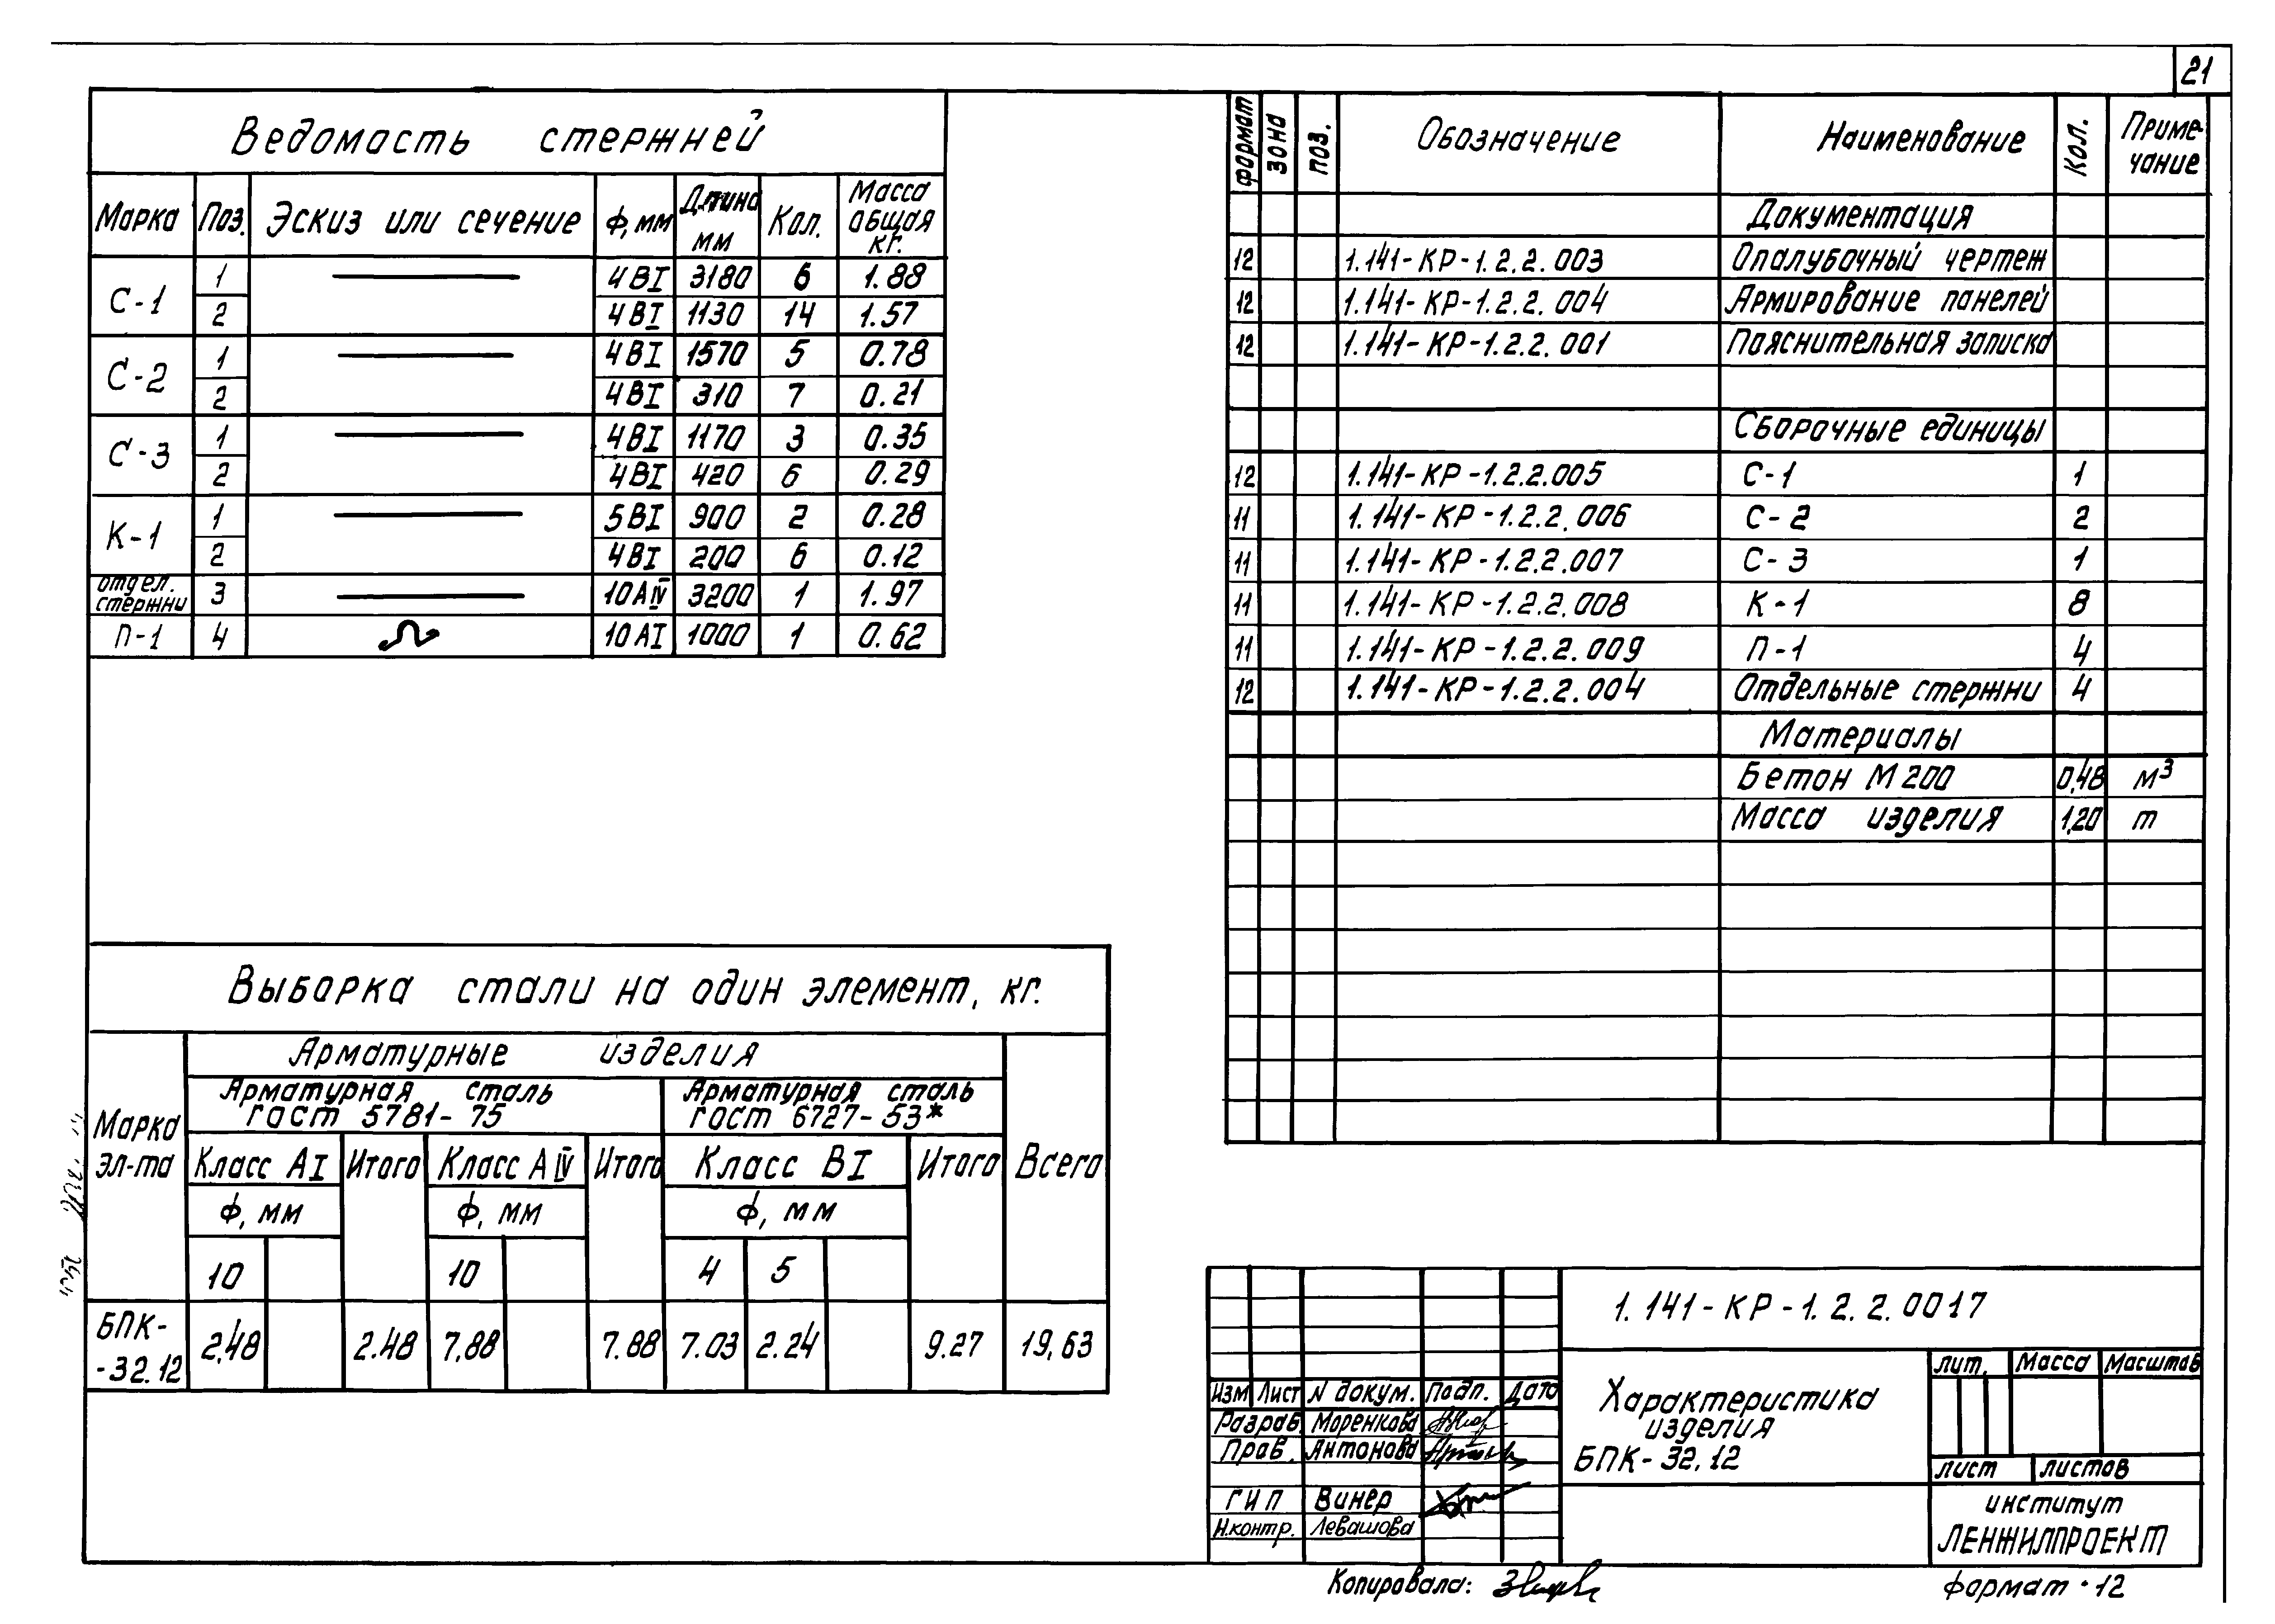 21
Ведомость стержней
Марка Поз. Эскиз или сечение ф, мм Длина мм Кол. Масса общая кг.
С-1 1 4ВI 3180 6 1.88
2 4ВI 1130 14 1.57
С-2 1 4ВI 1570 5 0.78
2 4ВI 310 7 0.21
С-3 1 4ВI 1170 3 0.35
2 4ВI 420 6 0.29
К-1 1 5ВI 900 2 0.28
2 4ВI 200 6 0.12
отдел. стержни 3 10АIV 3200 1 1.97
П-1 4 10АI 1000 1 0.62
Выборка стали на один элемент, кг.
Марка эл-та
Арматурные изделия
Всего
Арматурная сталь ГОСТ 5781-75
Арматурная сталь ГОСТ 6727-53*
Класс АI Итого Класс АIV Итого Класс ВI Итого
ф, мм ф, мм ф, мм
10 10 4 5
БПК-
-32.12 2,48 2.48 7,88 7.88 7.03 2.24 9.27 19,63
формат зона поз. Обозначение Наименование Кол. Приме-
чание
Документация
12 1.141-КР-1.2.2.003 Опалубочный чертеж
12 1.141-КР-1.2.2.004 Армирование панелей
12 1.141-КР-1.2.2.001 Пояснительная записка
Сборочные единицы
12 1.141-КР-1.2.2.005 С-1 1
11 1.141-КР-1.2.2.006 С-2 2
11 1.141-КР-1.2.2.007 С-3 1
11 1.141-КР-1.2.2.008 К-1 8
11 1.141-КР-1.2.2.009 П-1 4
12 1.141-КР-1.2.2.004 Отдельные стержни 4
Материалы
Бетон М200 0,48 м³
Масса изделия 1,20 т
1.141-КР-1.2.2.0017
Изм Лист N докум. Подп. Дата
Разраб. Моренкова
Пров. Антонова
ГИП Винер
Н.контр. Левашова
Характеристика
изделия
БПК-32.12
лит. Масса Масштаб
лист листов
институт
ЛЕНЖИЛПРОЕКТ
Копировала:
формат · 12